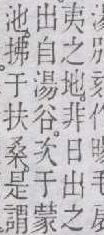 夷之地。非日出之
出自湯谷。次于蒙
池。拂于扶桑是謂